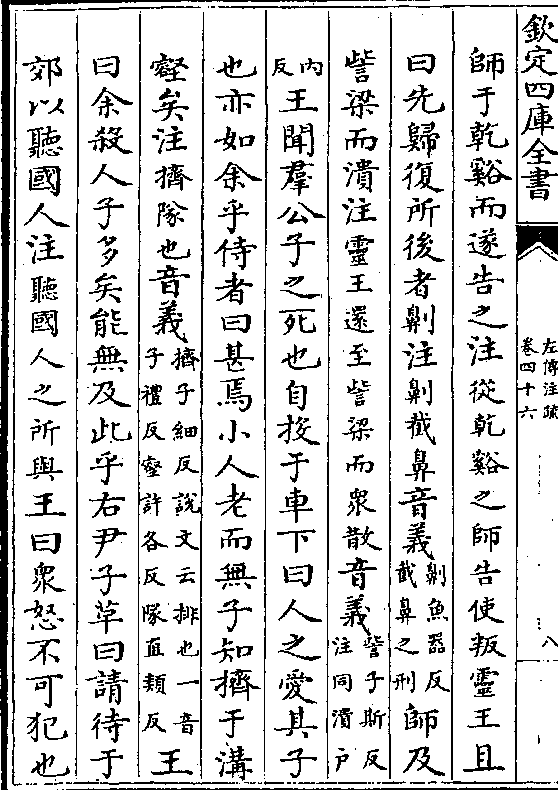 欽定四庫全書
左傳注疏
卷四十六
八
師于乾谿而遂告之注從乾谿之師告使叛靈王且
曰先歸復所後者劓注劓截鼻音義劓魚器反截鼻之刑師及
訾梁而潰注靈王還至訾梁而衆散音義訾子斯反注同潰户
内反王聞羣公子之死也自投于車下曰人之愛其子
也亦如余乎侍者曰甚焉小人老而無子知擠于溝
壑矣注擠隊也音義擠子細反說文云排也一音子禮反壑許各反隊直類反王
曰余殺人子多矣能無及此乎右尹子草曰請待于
郊以聽國人注聽國人之所與王曰衆怒不可犯也